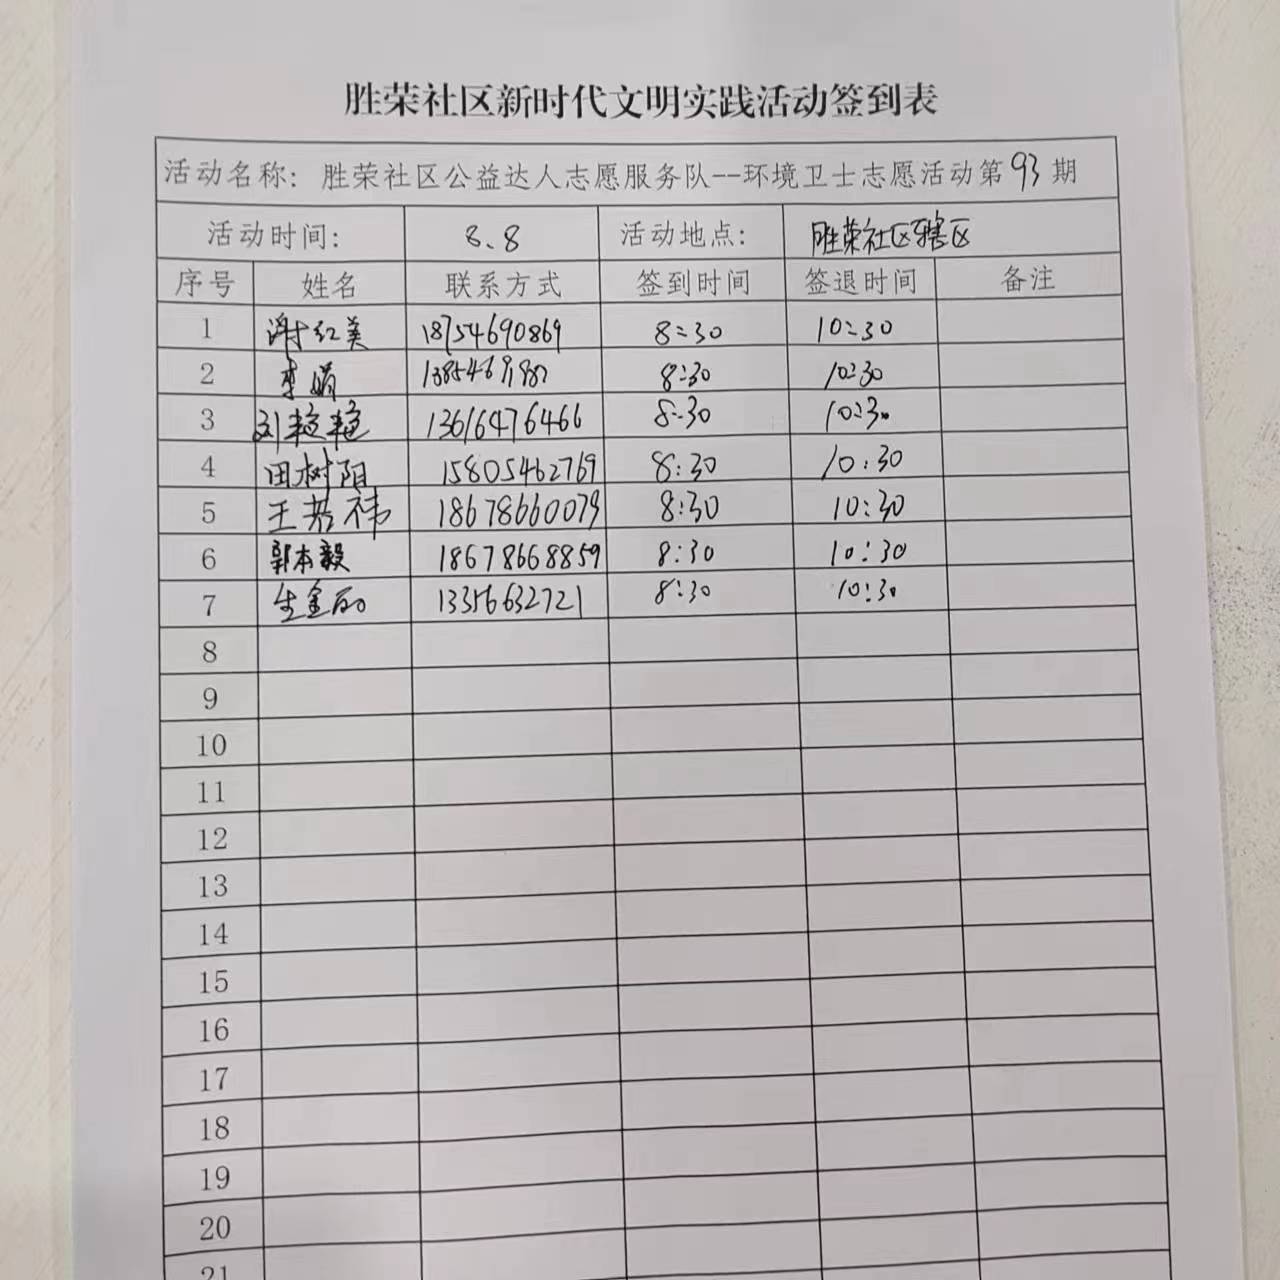 胜荣社区新时代文明实践活动签到表
活动名称：胜荣社区公益达人志愿服务队--环境卫士志愿活动第93期
活动时间： 8.8 活动地点： 胜荣社区辖区
序号 姓名 联系方式 签到时间 签退时间 备注
1 谢红美 18754690869 8:30 10:30
2 李娟 8:30 10:30
3 刘艳艳 13616476466 8:30 10:30
4 田树阳 15805462769 8:30 10:30
5 王若祎 18678660079 8:30 10:30
6 郭本毅 18678668859 8:30 10:30
7 生金丽 13356632721 8:30 10:30
8
9
10
11
12
13
14
15
16
17
18
19
20
21